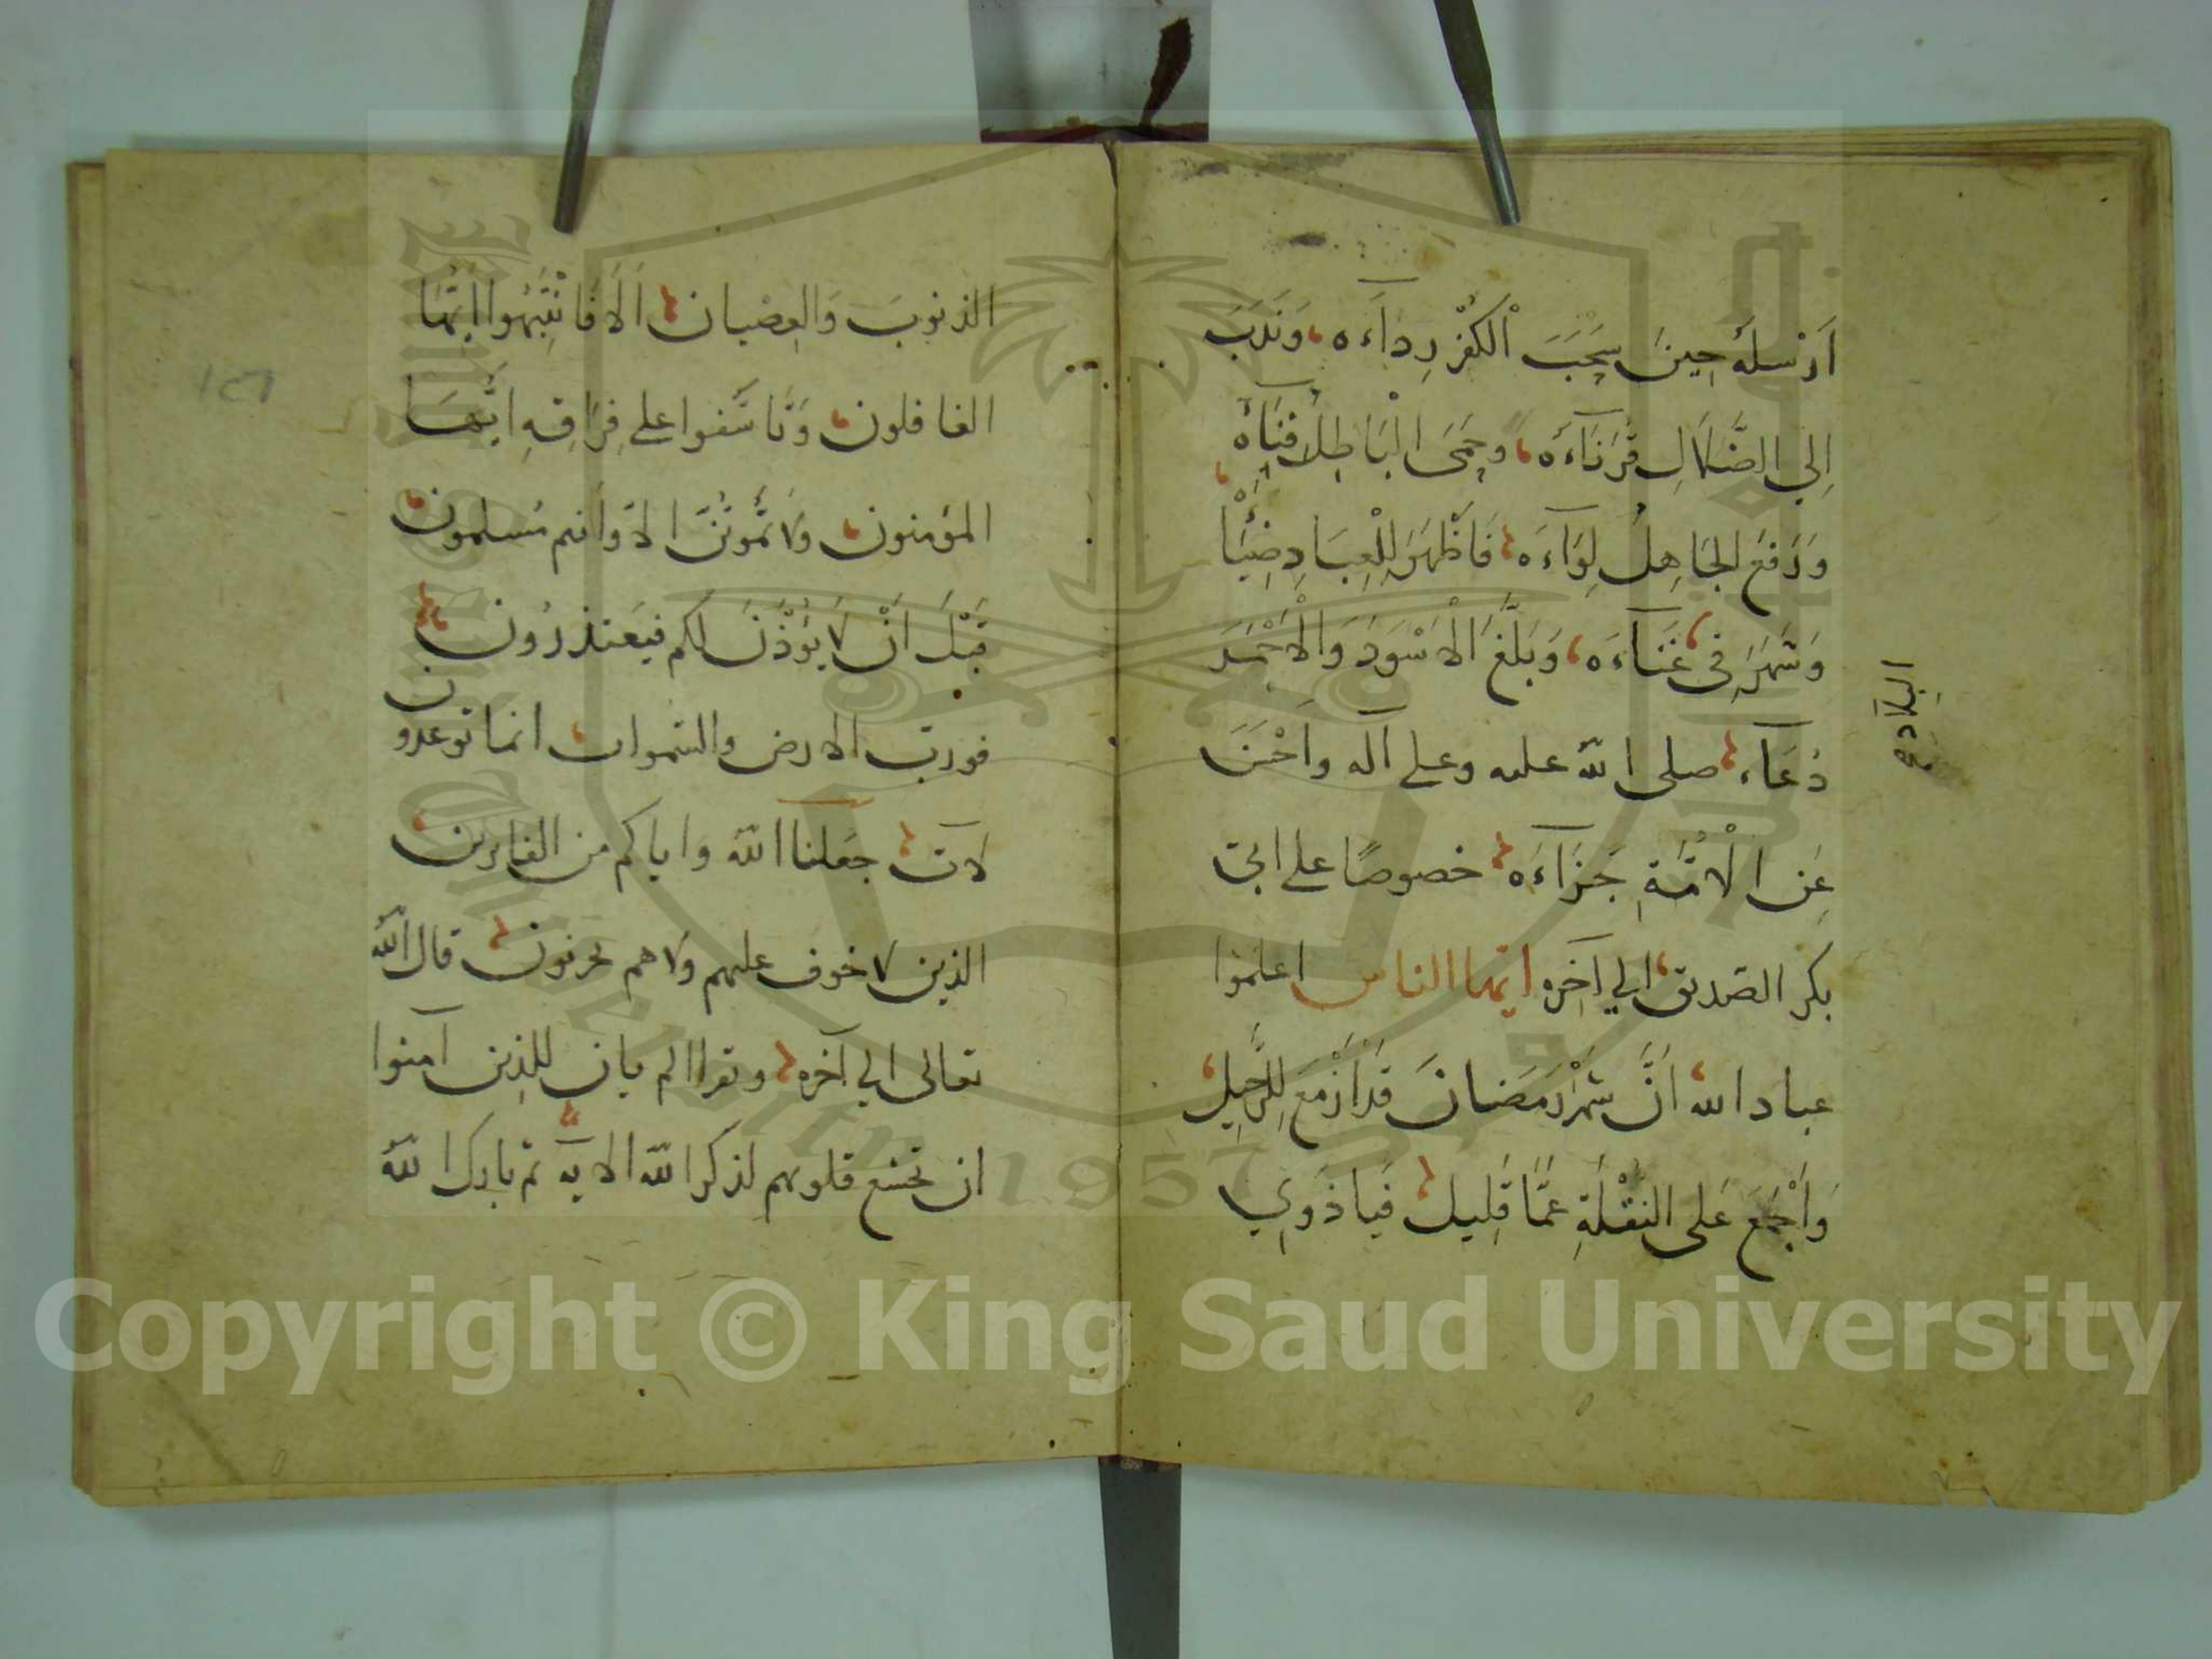 اَرْسَلَهُ حِينَ سَحَبَ الْكُفْرُ رِدَآءَه وَنَدَبَ
اِلي الضَّلَالِ قُرَنَآءَه وحمَى الْبَاطِلُ فِنَآهُ
وَرَفَعَ الجَاهِلُ لِوَآءَه فَاَظْهَرَ لِلْعِبَادِ ضِئَا
وَشَهَرَ في غَنَآءَه وَبَلَّغَ الْاَسْوَدَ وَالْاَحْمَرَ
البلاده
دُعَآءَ صلى الله عليه وعلى آله وَاَحْسَنَ
عَنِ الْاُمَّةِ جَزَآءَه خصوصًا على ابى
بكر الصّديق الي آخره ايّها الناس اعلموا
عباد الله اَنَّ شَهْرَ رَمَضَانَ قَدْ اَزْمَعَ لِلرَّحِيلِ
وَاَجْمَعَ عَلى النُقْلَةِ عَمَّا قَلِيل فَيا ذَوِي
الذنوبَ وَالعِصْيان اَلَا فَانْتَبِهُوا ايّها
الغافلون وَتَاَسَّفوا على فِرَاقِهِ ايُّهَا
المؤمنون وَلَا تَمُوتُنَّ الّا وَاَنتم مُسلمون
قَبْلَ اَنْ لَا يُؤذَنَ لكم فيَعتذرُون
فورب الارض والسّموات انما توعدون
لآت جعَلنا الله واياكم من الفايزين
الذين لا خوف عليهم ولا هم يحزنون قال الله
تعالى الي آخره وتقرا الم يان للذين آمنوا
ان تخشع قلوبهم لذكر الله الايه ثم بارك الله
١٥٦
Copyright © King Saud University
1957